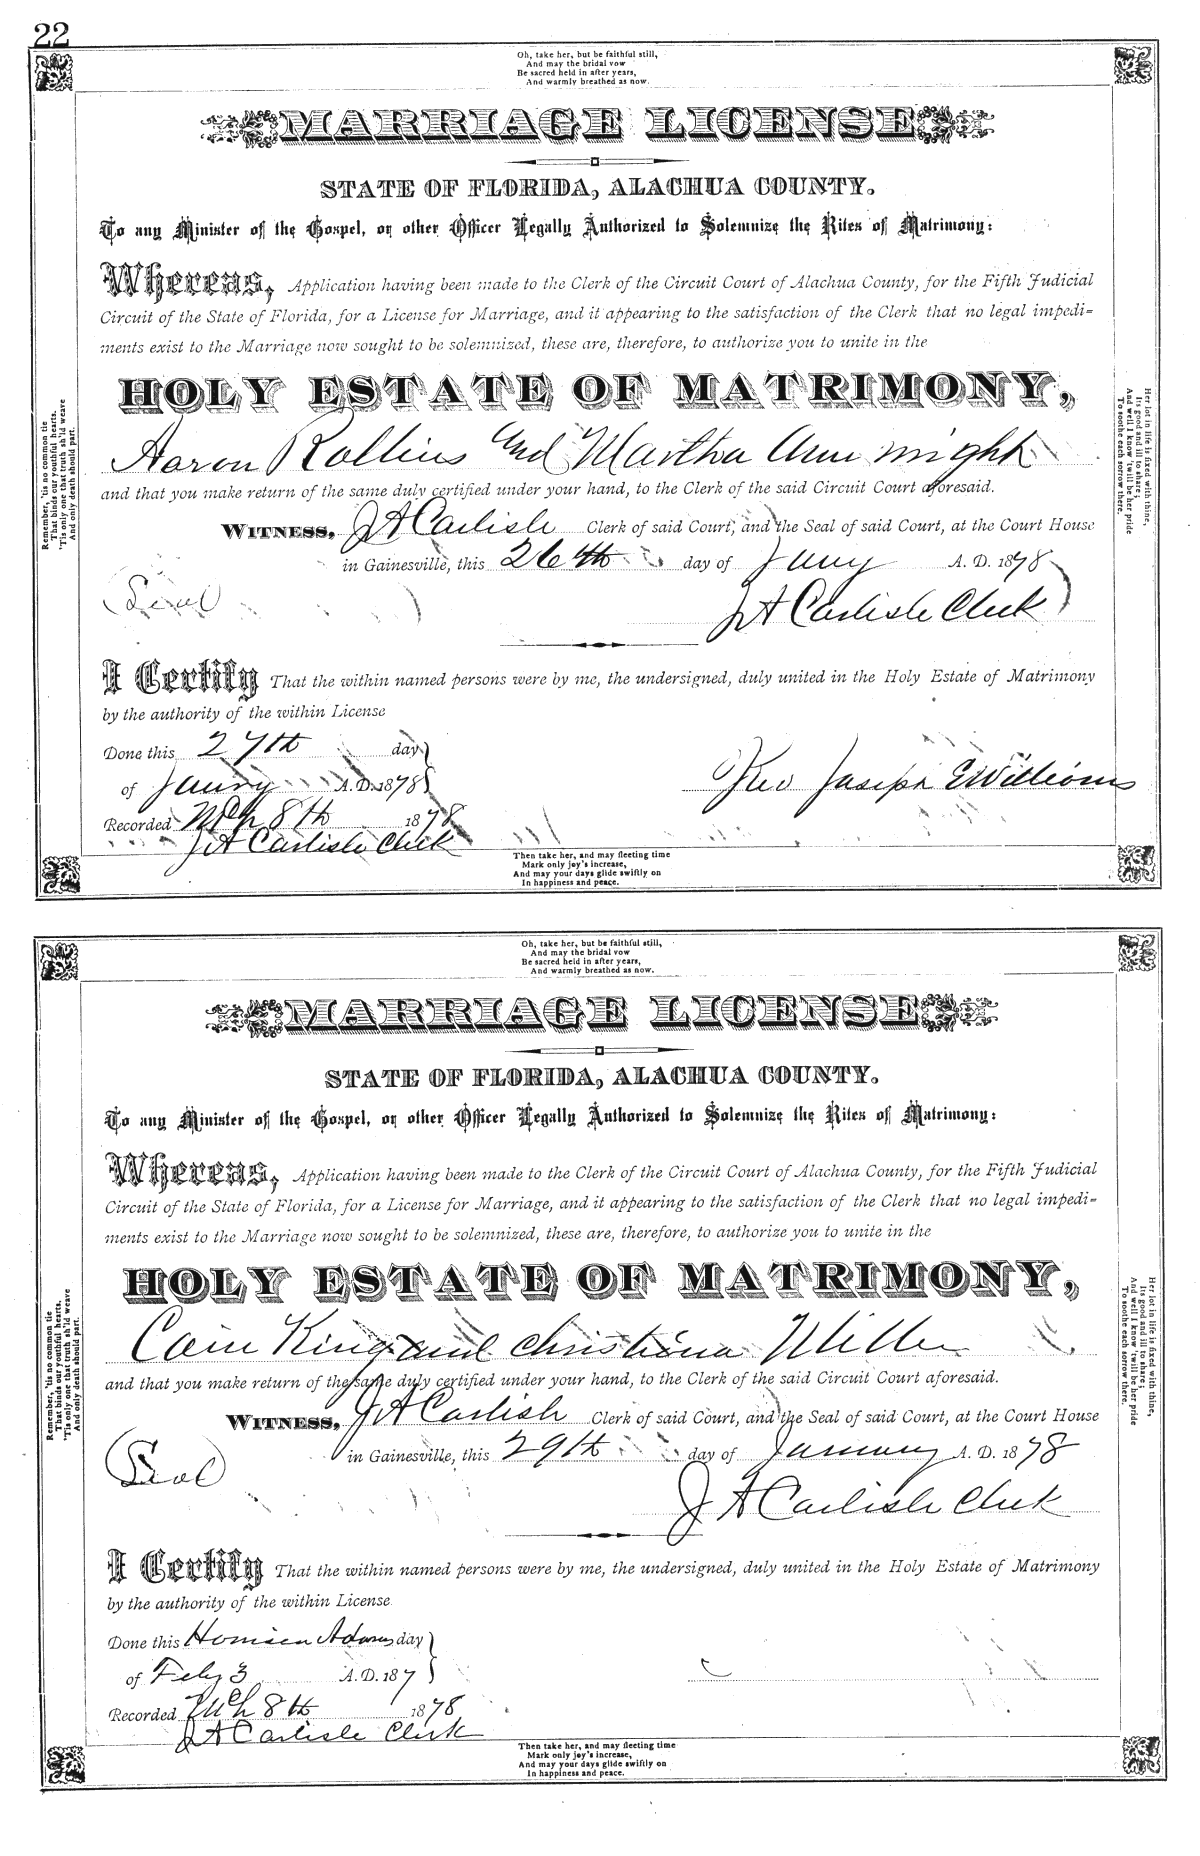 22
Oh, take her, but be faithful still,
And may the bridal vow
Be sacred held in after years,
And warmly breathed as now.
MARRIAGE LICENSE
STATE OF FLORIDA, ALACHUA COUNTY.
To any Minister of the Gospel, or other Officer Legally Authorized to Solemnize the Rites of Matrimony:
Whereas, Application having been made to the Clerk of the Circuit Court of Alachua County, for the Fifth Judicial
Circuit of the State of Florida, for a License for Marriage, and it appearing to the satisfaction of the Clerk that no legal impedi-
ments exist to the Marriage now sought to be solemnized, these are, therefore, to authorize you to unite in the
HOLY ESTATE OF MATRIMONY,
Aaron Rollins and Martha Ann
and that you make return of the same duly certified under your hand, to the Clerk of the said Circuit Court aforesaid.
WITNESS, J A Carlisle Clerk of said Court, and the Seal of said Court, at the Court House
in Gainesville, this 26th day of Jany A. D. 1878
(Seal)
J A Carlisle Clerk
I Certify That the within named persons were by me, the undersigned, duly united in the Holy Estate of Matrimony
by the authority of the within License
Done this 27th day
of Jany A. D. 1878
Rev Joseph E Williams
Recorded Mch 8th 1878
J A Carlisle Clerk
Then take her, and may fleeting time
Mark only joy's increase,
And may your days glide swiftly on
In happiness and peace.
Remember, 'tis no common tie
That binds our youthful hearts,
'Tis only one that truth sh'ld weave
And only death should part.
Her lot in life is fixed with thine,
Its good and ill to share;
And well I know 'twill be her pride
To soothe each sorrow there.
Oh, take her, but be faithful still,
And may the bridal vow
Be sacred held in after years,
And warmly breathed as now.
MARRIAGE LICENSE
STATE OF FLORIDA, ALACHUA COUNTY.
To any Minister of the Gospel, or other Officer Legally Authorized to Solemnize the Rites of Matrimony:
Whereas, Application having been made to the Clerk of the Circuit Court of Alachua County, for the Fifth Judicial
Circuit of the State of Florida, for a License for Marriage, and it appearing to the satisfaction of the Clerk that no legal impedi-
ments exist to the Marriage now sought to be solemnized, these are, therefore, to authorize you to unite in the
HOLY ESTATE OF MATRIMONY,
Cain King and Christiana
and that you make return of the same duly certified under your hand, to the Clerk of the said Circuit Court aforesaid.
WITNESS, J A Carlisle Clerk of said Court, and the Seal of said Court, at the Court House
in Gainesville, this 29th day of January A. D. 1878
(Seal)
J A Carlisle Clerk
I Certify That the within named persons were by me, the undersigned, duly united in the Holy Estate of Matrimony
by the authority of the within License
Done this Adams day
of Feby 3 A. D. 187
Recorded Mch 8th 1878
J A Carlisle Clerk
Then take her, and may fleeting time
Mark only joy's increase,
And may your days glide swiftly on
In happiness and peace.
Remember, 'tis no common tie
That binds our youthful hearts,
'Tis only one that truth sh'ld weave
And only death should part.
Her lot in life is fixed with thine,
Its good and ill to share;
And well I know 'twill be her pride
To soothe each sorrow there.